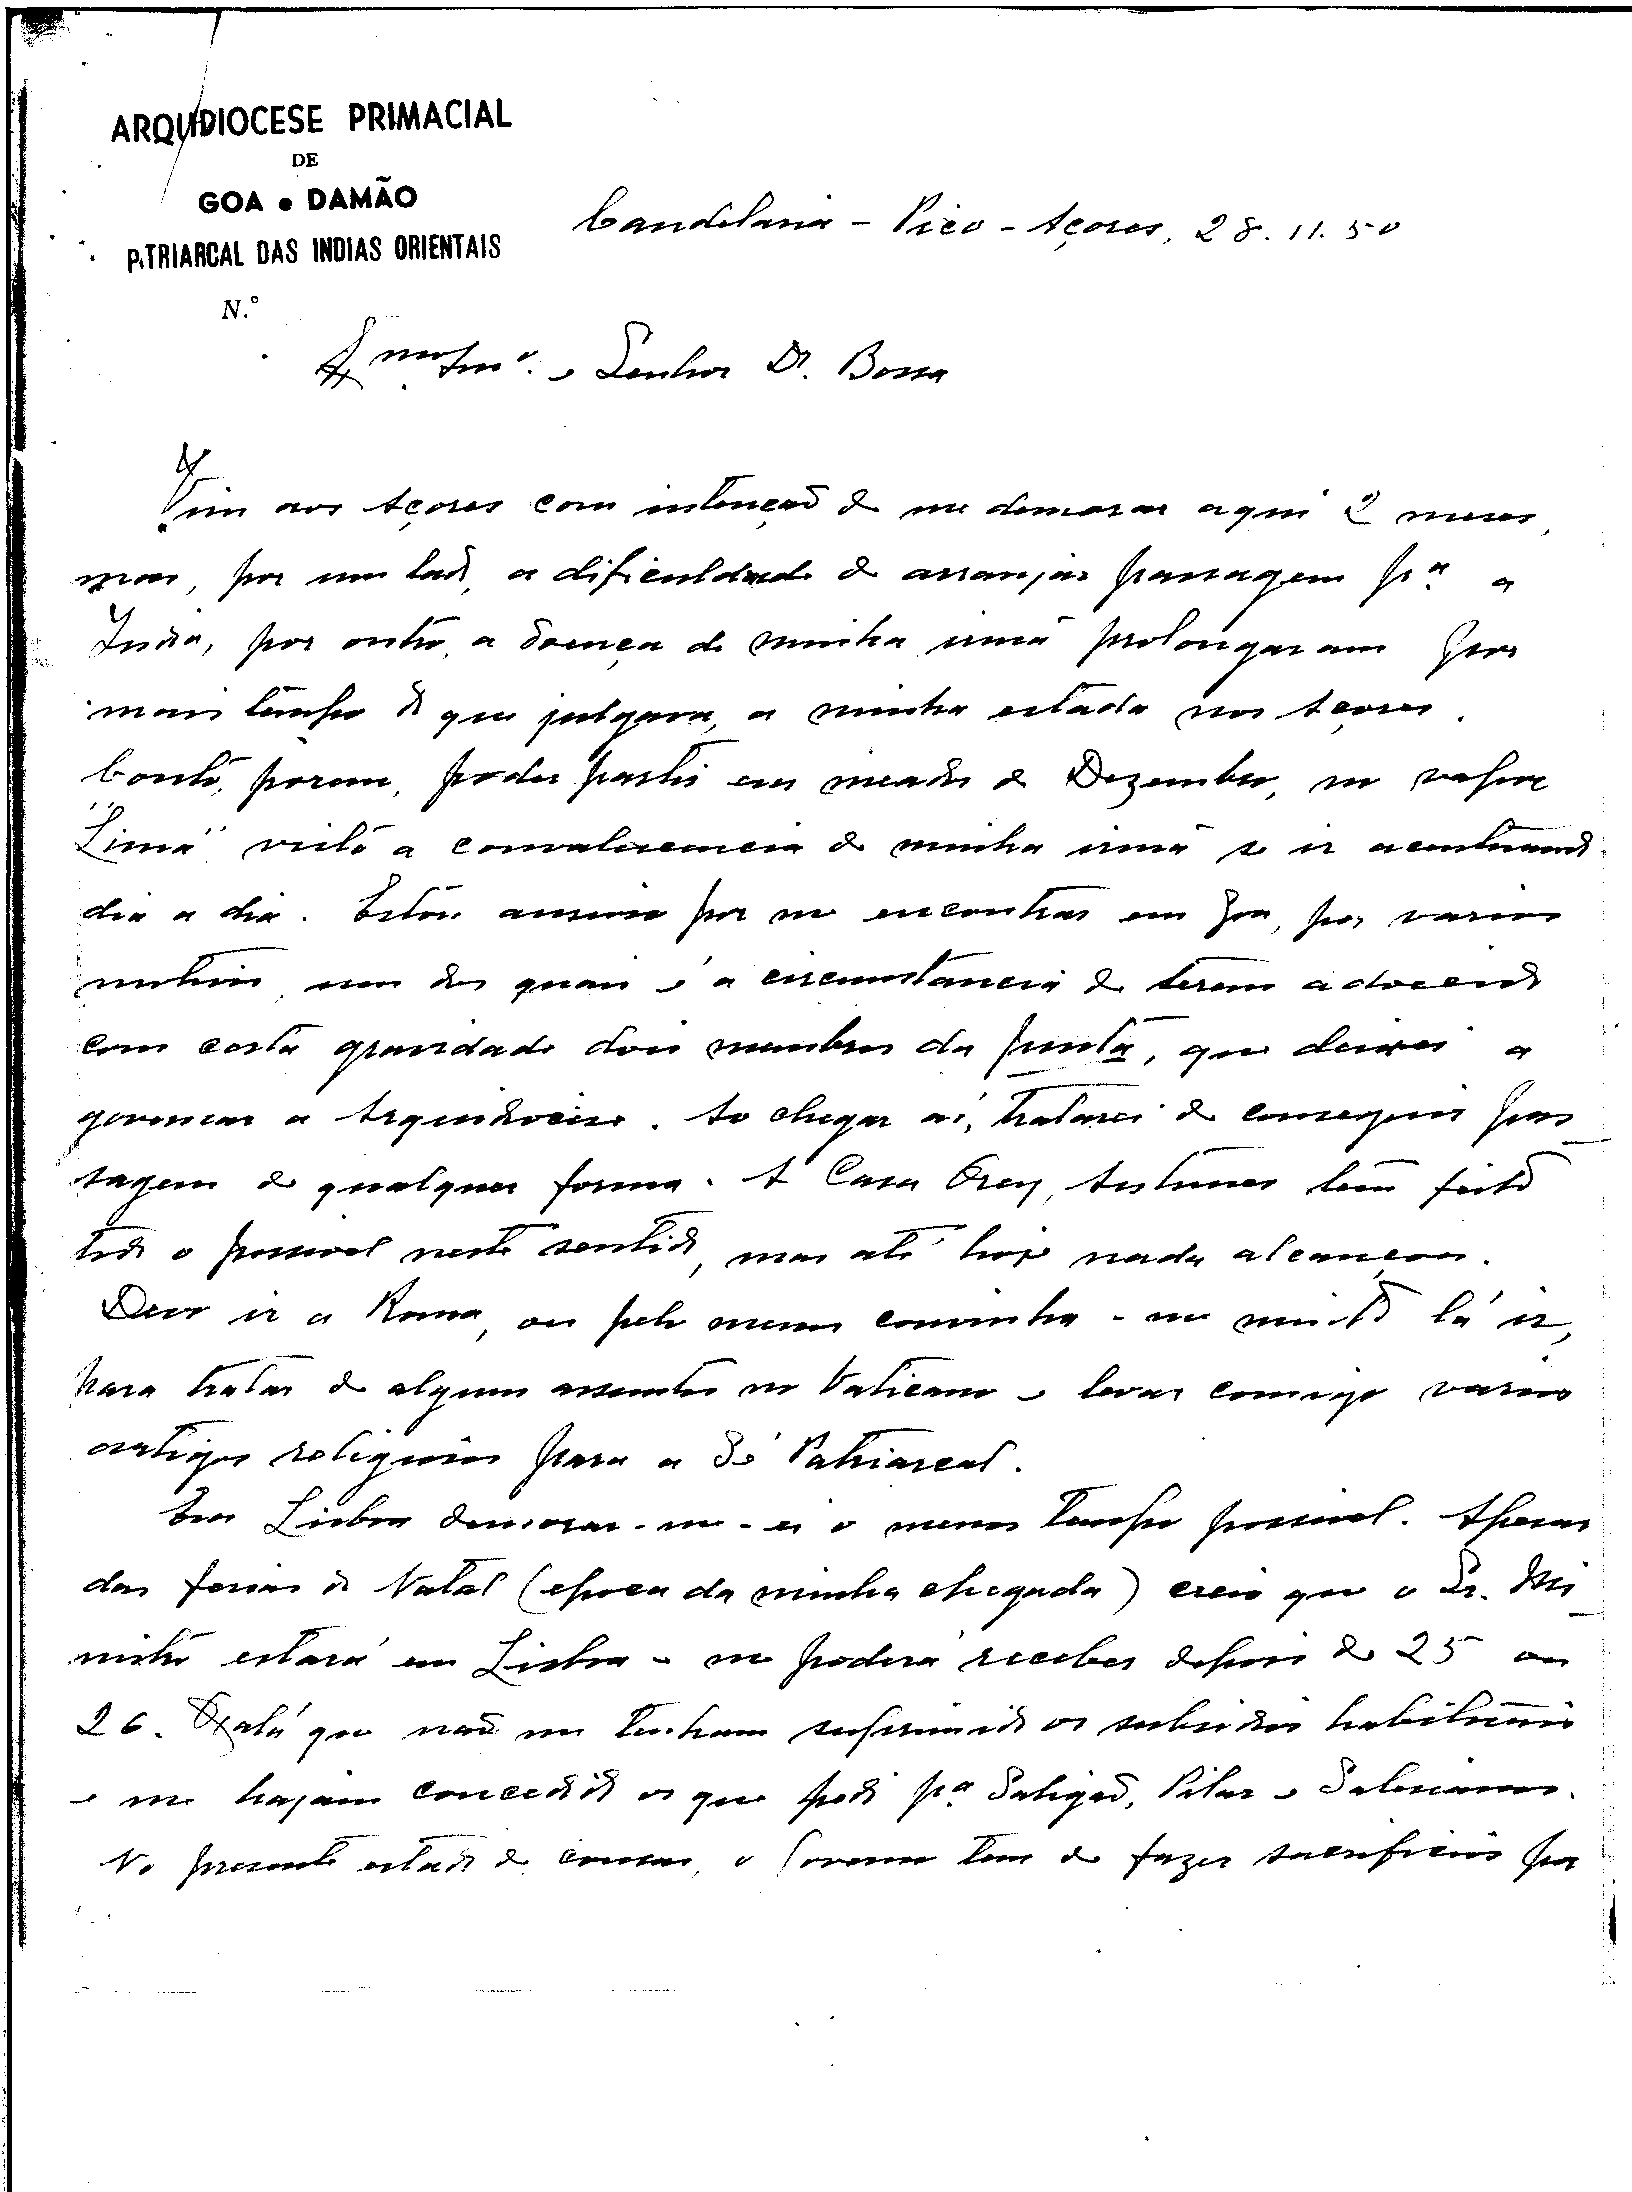 ARQUIDIOCESE PRIMACIAL
DE
GOA e DAMÃO
PATRIARCAL DAS INDIAS ORIENTAIS
N.º
Candelaria - Pico - Açores, 28.11.50
Senhor Dr. Bossa
Vim aos Açores com intenção de me demorar aqui 2 meses,
mas, por um lado, a dificuldade de arranjar passagem pª a
India, por outro, a doença de minha irmã prolongaram por
mais tempo do que julgava, a minha estada nos Açores.
Conto, porem, poder partir em meados de Dezembro, no vapor
"Lima" visto a convalescencia de minha irmã se ir acentuando
dia a dia. Estou ansioso por me encontrar em Goa, por varios
motivos, um dos quais é a circumstancia de terem adoecido
com certa gravidade dois membros da Junta, que deixei a
governar a Arquidiocese. Ao chegar aí, tratarei de conseguir pas
sagem de qualquer forma. A Casa Orey, Antunes tem feito
todo o possivel neste sentido, mas até hoje nada alcançou.
Devo ir a Roma, ou pelo menos convinha-me muito lá ir,
para tratar de alguns assuntos no Vaticano e levar comigo varios
artigos religiosos para a Sé Patriarcal.
Em Lisboa demorar-me-ei o menos tempo possivel. Apesar
das ferias do Natal (epoca da minha chegada) creio que o Sr. Mi
nistro estará em Lisboa e me poderá receber depois de 25 ou
26. Oxalá que não me tenham suprimido os subsidios habituais
e me hajam concedido os que pedi pª Saligão, Pilar e Salesianos.
No presente estado de cousas, o Governo tem de fazer sacrificios por